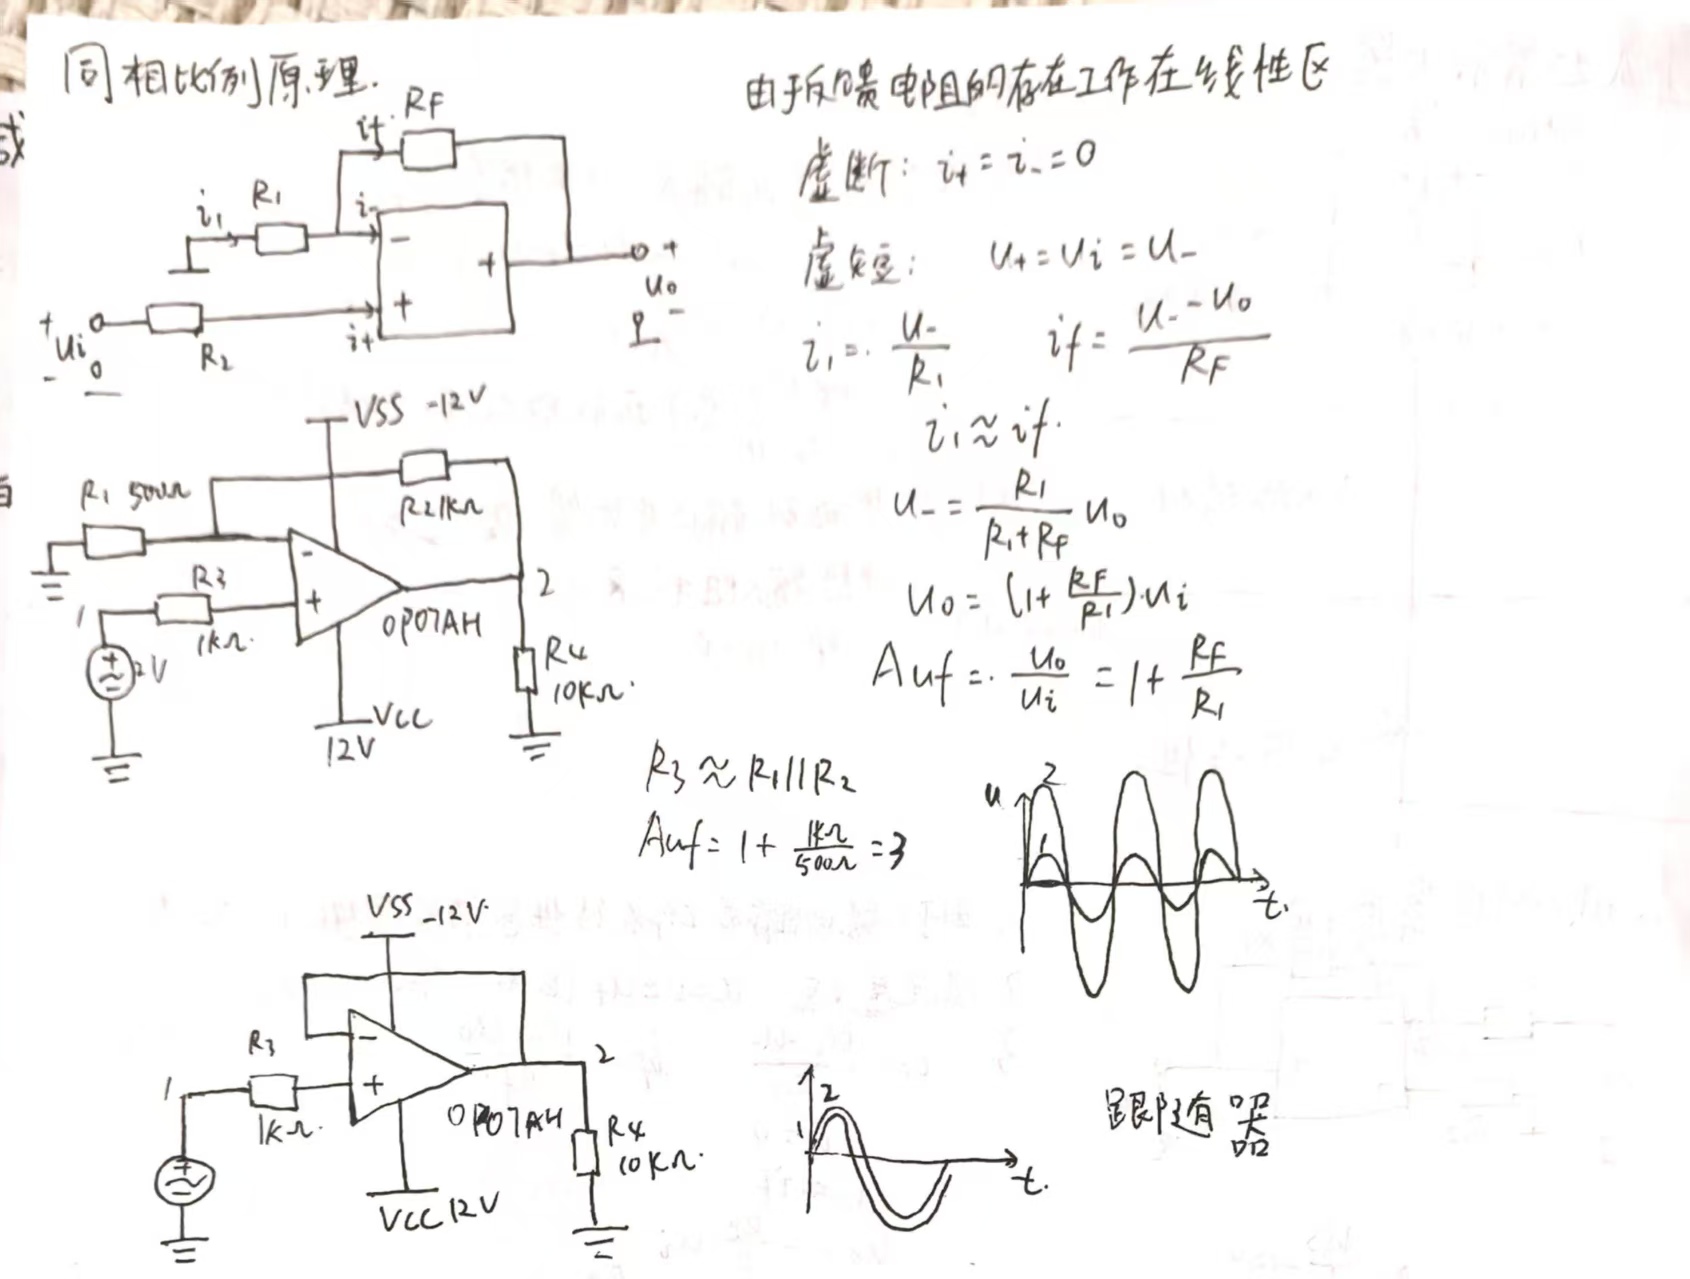 同相比例原理.
RF
if
i₁ R₁ i₋
−
+
+ u₀ −
+ ui −
R₂ i+
+
由于反馈电阻的存在工作在线性区
虚断: i₊ = i₋ = 0
虚短: u₊ = ui = u₋
i₁ = u₋/R₁ if = (u₋ - u₀)/RF
i₁ ≈ if.
u₋ = R₁/(R₁+RF) u₀
u₀ = (1+ RF/R1)·ui
Auf = u₀/ui = 1 + RF/R₁
VSS -12V
R₁ 500Ω
R2 1kΩ
−
+
R3
1kΩ.
1
2V
OP07AH
2
R4
10kΩ.
VCC
12V
R₃ ≈ R₁//R₂
Auf = 1 + 1kΩ/500Ω = 3
u
2
1
t.
VSS -12V.
R₃
1
1kΩ.
−
+
OP07AH
2
R4
10kΩ.
VCC 12V
2
1
t.
跟随器